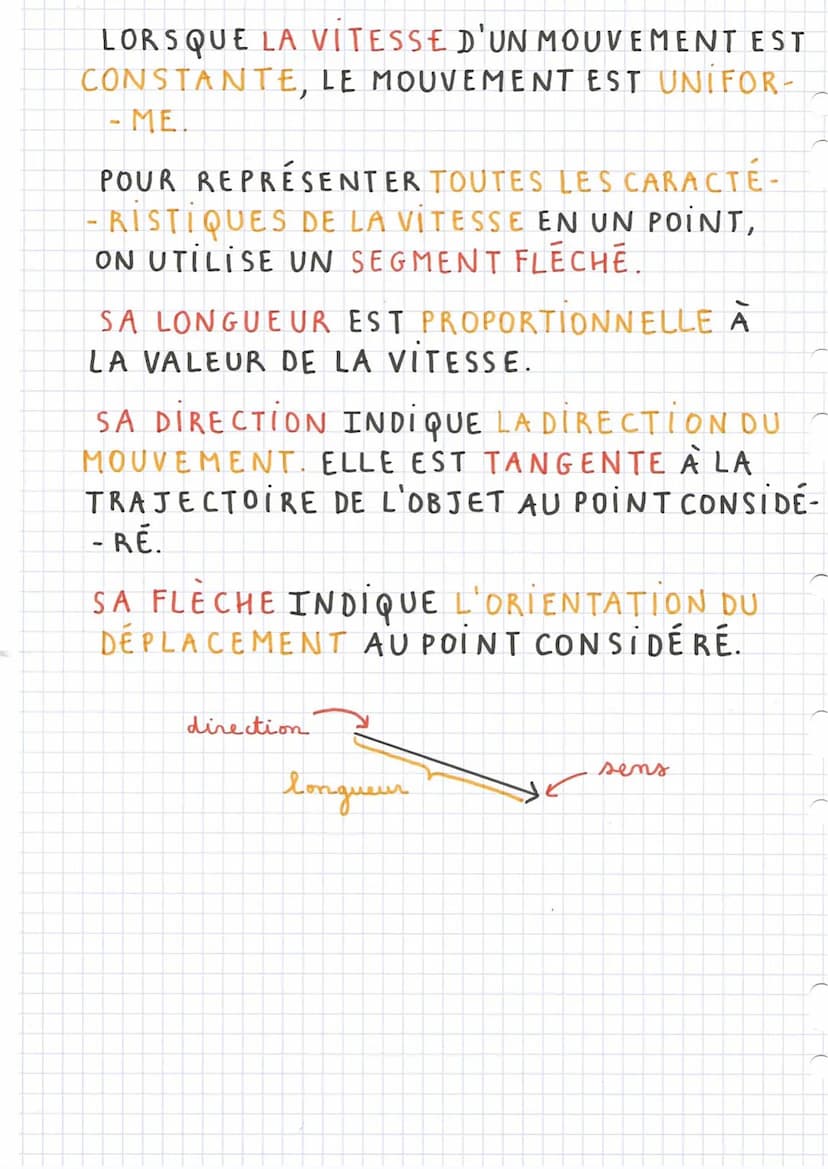 LORSQUE LA VITESSE D'UN MOUVEMENT EST
CONSTANTE, LE MOUVEMENT EST UNIFOR-
- ME.
POUR REPRÉSENTER TOUTES LES CARACTÉ-
- RISTIQUES DE LA VITESSE EN UN POINT,
ON UTILISE UN SEGMENT FLÉCHÉ.
SA LONGUEUR EST PROPORTIONNELLE À
LA VALEUR DE LA VITESSE.
SA DIRECTION INDIQUE LA DIRECTION DU
MOUVEMENT. ELLE EST TANGENTE À LA
TRAJECTOIRE DE L'OBJET AU POINT CONSIDÉ-
- RÉ.
SA FLÈCHE INDIQUE L'ORIENTATION DU
DÉPLACEMENT AU POINT CONSIDÉRÉ.
direction
sens
longueur